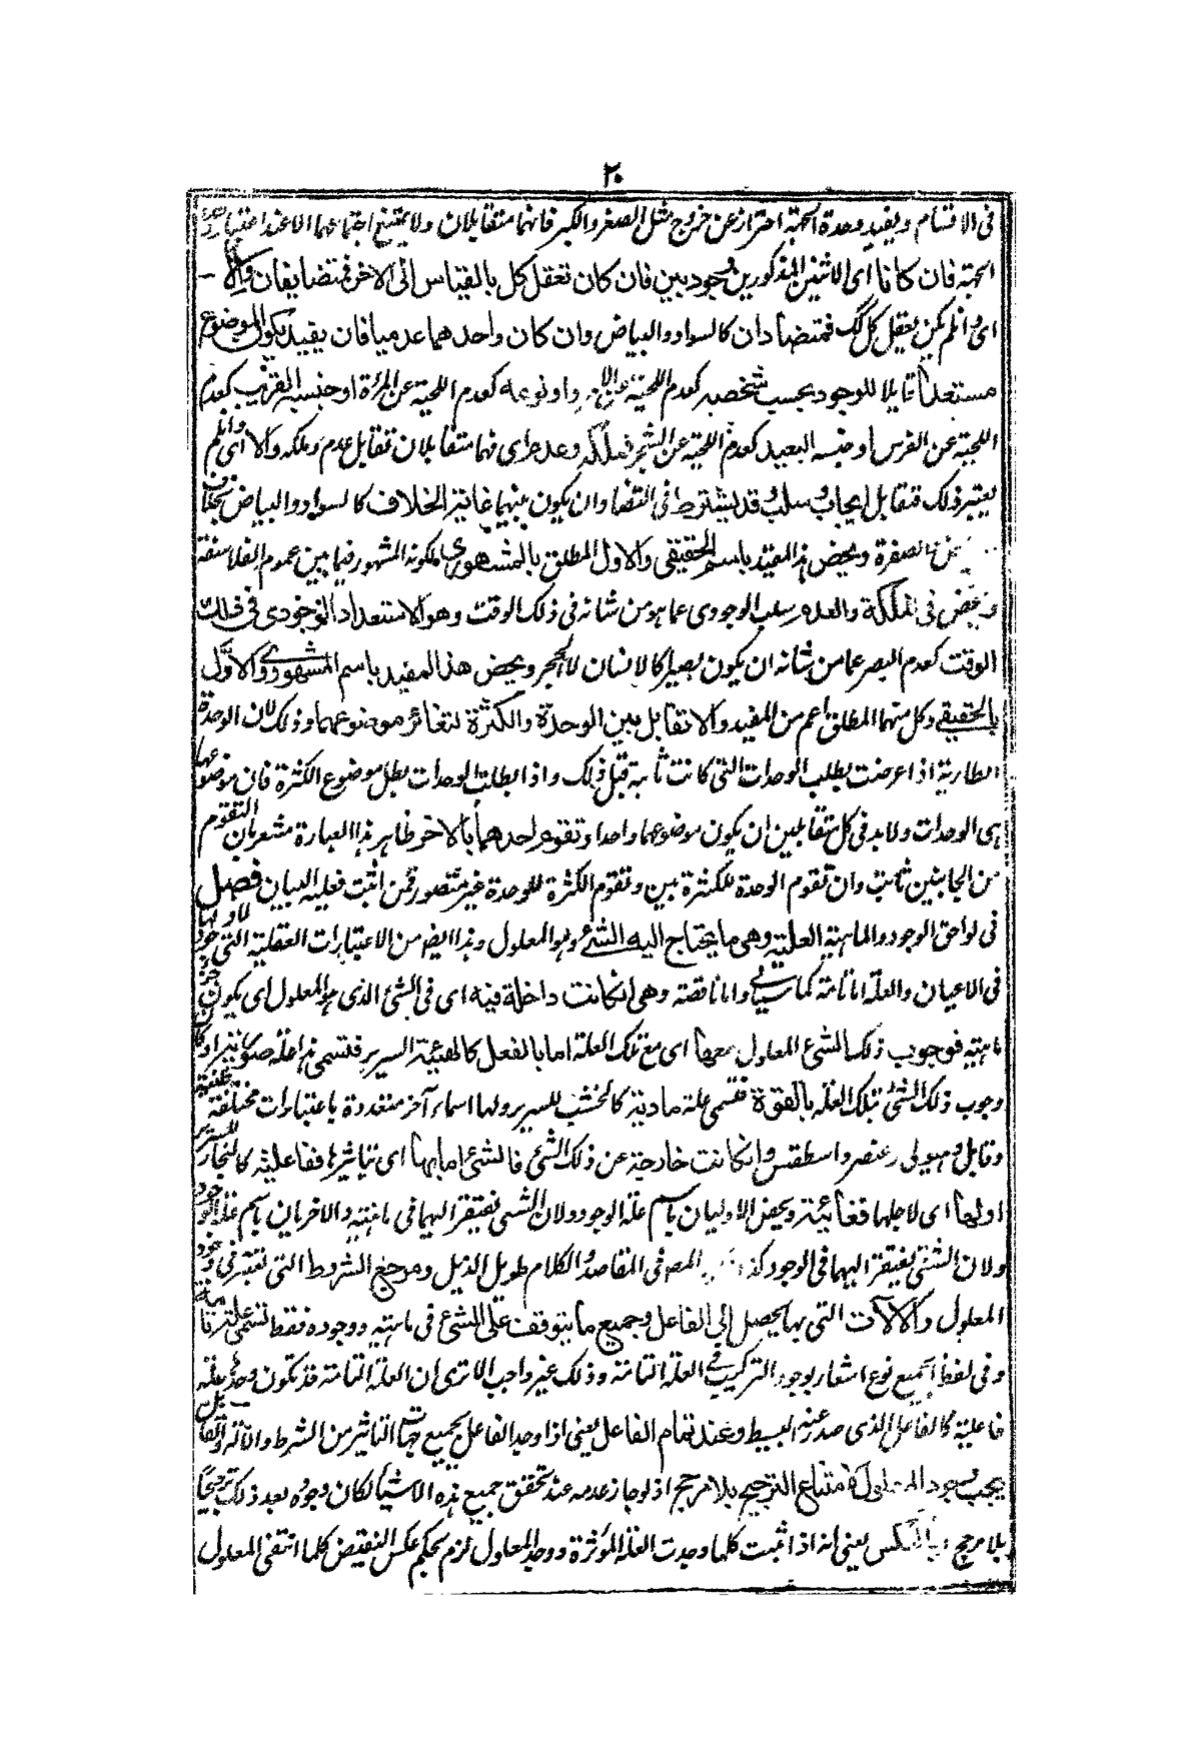 ٢٠
فى الاقسام ويفيد وحدة الجهة احتراز عن خروج مثل الصغر والكبر فانهما متقابلان ولا يمتنع اجتماعهما الا عند اعتبار وحدة
الجهة فان كانا اى الاثنين المذكورين وجوديين فان كان تعقل كل بالقياس الى الآخر فمتضايفان والا
اى وان لم يكن يعقل كل كك فمتضادان كالسواد والبياض وان كان واحدهما عدميا فان يقيد بكون الموضوع
مستعدا قابلا للوجود بحسب شخصه كعدم اللحية عن او نوعه كعدم اللحية عن المرأة او جنسه القريب كعدم
اللحية عن الفرس او جنسه البعيد كعدم اللحية عن الشجر فملكة وعدم اى فهما متقابلان تقابل عدم وملكه والا اى وان لم
يعتبر ذلك فتقابل ايجاب وسلب وقد يشترط فى التضاد ان يكون بينهما غاية الخلاف كالسواد والبياض بخلاف
الصفرة ويخص هذا المقيد باسم الحقيقى والاول المطلق بالمشهورى لكونه المشهور فيما بين عموم الفلاسفة
ويخص فى الملكة والعدم سلب الوجودى عما هو من شانه فى ذلك الوقت وهو الاستعداد الوجودى فى ذلك
الوقت كعدم البصر عما من شانه ان يكون بصيرا كالانسان لا الحجر ويخص هذا المقيد باسم المشهورى والاول
بالحقيقى وكل منهما المطلق اعم من المقيد ولا تقابل بين الوحدة والكثرة لتغائر موضوعهما وذلك لان الوحدة
الطارية اذا عرضت بطلب الوحدات التى كانت ثابتة قبل ذلك واذا بطلت الوحدات بطل موضوع الكثرة فان موضوعها
هى الوحدات ولا بد فى كل متقابلين ان يكون موضوعهما واحدا وتقوم احدهما بالآخر ظاهر هذا العبارة مشعر بان التقوم
من الجانبين ثابت وان تقوم الوحدة للكثرة بين وتقوم الكثرة للوحدة غير متصور فمن اثبت فعليه البيان فصل
فى لواحق الوجود والماهية العلية وهى ما يحتاج اليه الشئ وهو المعلول وهذا ايضا من الاعتبارات العقلية التى لا وجود لها
فى الاعيان والعلة اما تامة كما سياتى واما ناقصة وهى ان كانت داخلة فيه اى فى الشئ الذى هو المعلول اى يكون جزء
ماهيته فوجوب ذلك الشئ المعلول معها اى مع تلك العلة اما بالفعل كالهيئة السرير فتسمى هذا علة صورية او كان
وجوب ذلك الشئ بتلك العلة بالقوة فتسمى علة مادية كالخشب للسرير ولها اسماء آخر متعددة باعتبارات مختلفة
وقابل وهيولى وعنصر واسطقس وان كانت خارجة عن ذلك الشئ فالشئ اما بها اى بتاثيرها ففاعلية كالنجار للسرير
او لها اى لاجلها فغائية ويخص الاوليان باسم علة الوجود ولان الشئ يفتقر اليهما فى ماهيته والاخريان باسم علة الوجود
ولان الشئ يفتقر اليهما فى الوجود المصنف فى المقاصد والكلام طويل الذيل ومرجع الشروط التى تعتبر فى وجود
المعلول والآلات التى بها يحصل الى الفاعل وجميع ما يتوقف على الشئ فى ماهيته ووجوده فقط تسمى علة تامة
وفى لفظ الجميع نوع اشعار بوجود التركيب فى العلة التامة وذلك غير واجب الا ترى ان العلة التامة قد تكون وحده علة
فاعلية كالفاعل الذى صدر عنه البسيط وعند تمام الفاعل يعنى اذا وجد الفاعل بجميع جهات التاثير من الشرط والآلة
يجب وجود المعلول لامتناع الترجيح بلا مرجح اذ لو جاز عدمه عند تحقق جميع هذه الاشياء لكان وجوده بعد ذلك ترجيحا
بلا مرجح وبالعكس يعنى انه اذا ثبت كلما وجدت العلة المؤثرة ووجد المعلول لزم بحكم عكس النقيض كلما انتفى المعلول